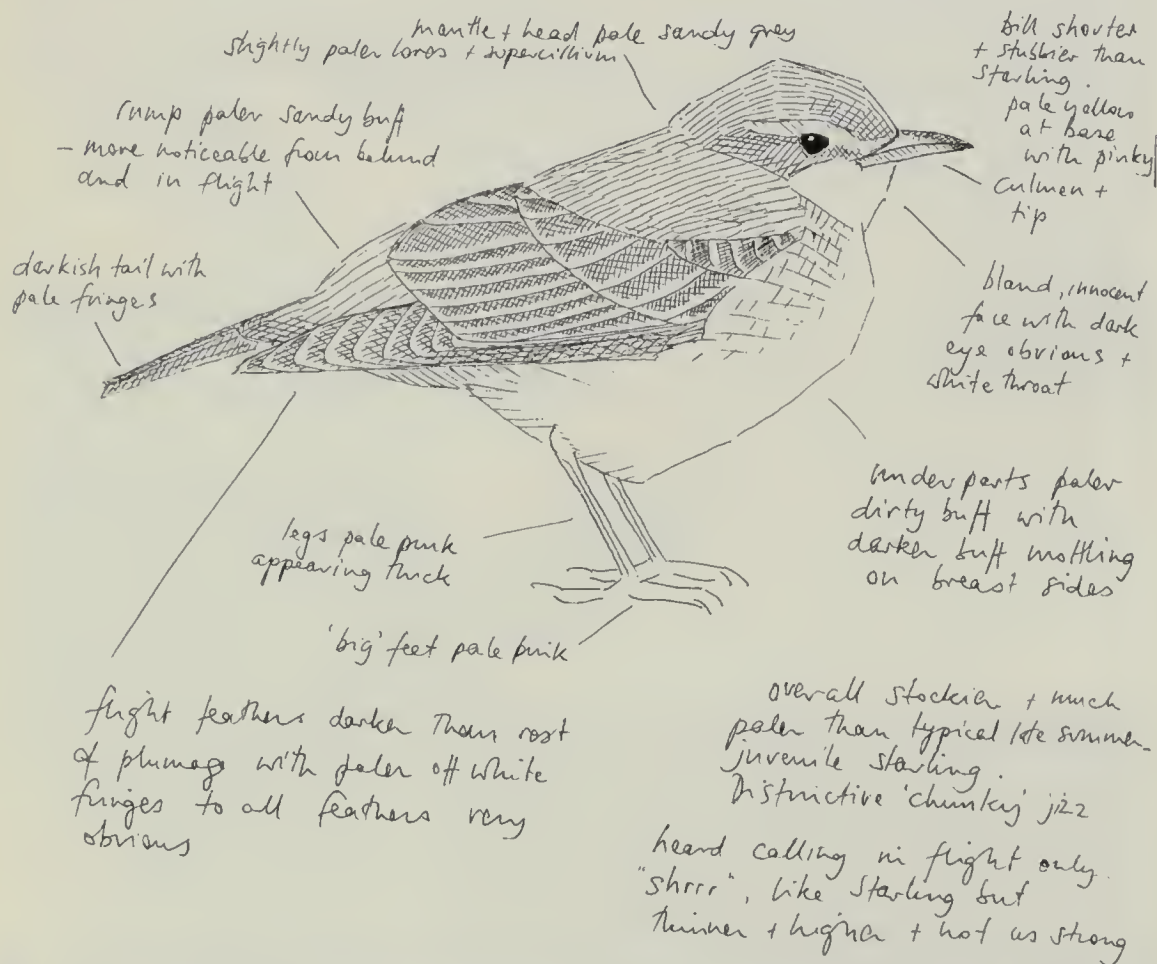 mantle + head pale sandy grey
slightly paler lores + supercillium
bill shorter
+ stubbier than
starling.
pale yellow
at base
with pinky
culmen +
tip
rump paler sandy buff
- more noticeable from behind
and in flight
darkish tail with
pale fringes
bland, innocent
face with dark
eye obvious +
white throat
underparts paler
dirty buff with
darker buff mottling
on breast sides
legs pale pink
appearing thick
'big' feet pale pink
flight feathers darker than rest
of plumage with paler off white
fringes to all feathers very
obvious
overall stockier + much
paler than typical late summer
juvenile starling.
Distinctive 'chunky' jizz
heard calling in flight only.
"shrrr", like Starling but
thinner + higher + not as strong